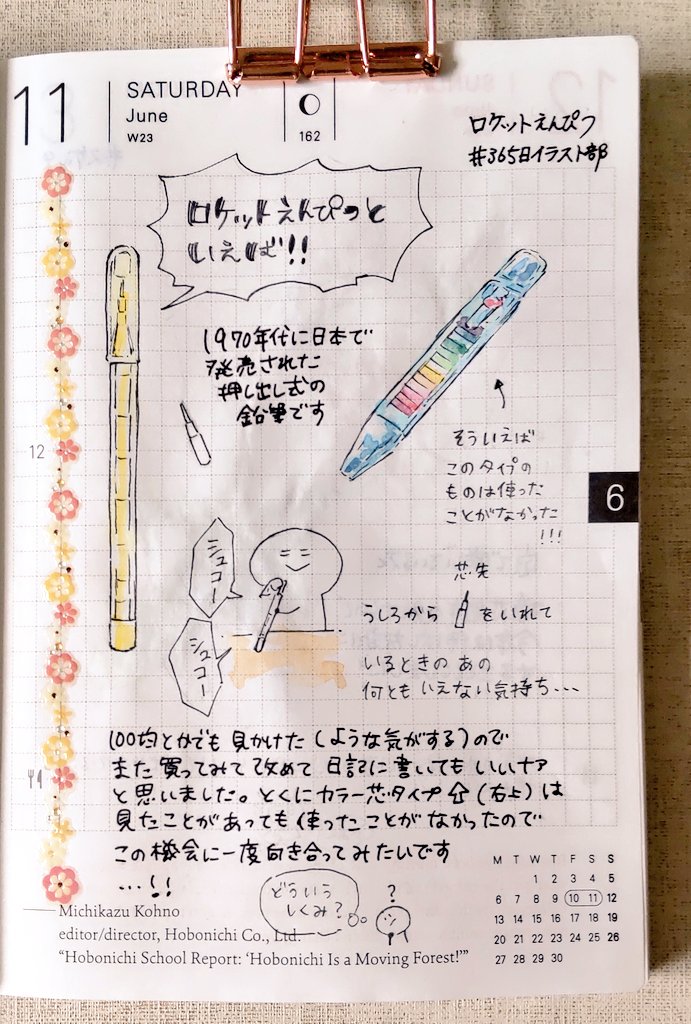 11
SATURDAY
June
W23
162
ロケットえんぴつ
#365日イラスト部
ロケットえんぴつと
いえば!!
1970年代に日本で
発売された
押し出し式の
鉛筆です
そういえば
このタイプの
ものは使った
ことがなかった
!!!
12
6
シュコー
シュコー
芯先
うしろから をいれて
いるときのあの
何ともいえない気持ち...
100均とかでも見かけた(ような気がする)ので
また買ってみて改めて日記に書いてもいいナァ
と思いました。とくにカラー芯タイプ(右上)は
見たことがあっても使ったことがなかったので
この機会に一度向き合ってみたいです
...!!
どういう
しくみ?
?
Michikazu Kohno
editor/director, Hobonichi Co., Ltd.
“Hobonichi School Report: ‘Hobonichi Is a Moving Forest!’”
M T W T F S S
1 2 3 4 5
6 7 8 9 10 11 12
13 14 15 16 17 18 19
20 21 22 23 24 25 26
27 28 29 30